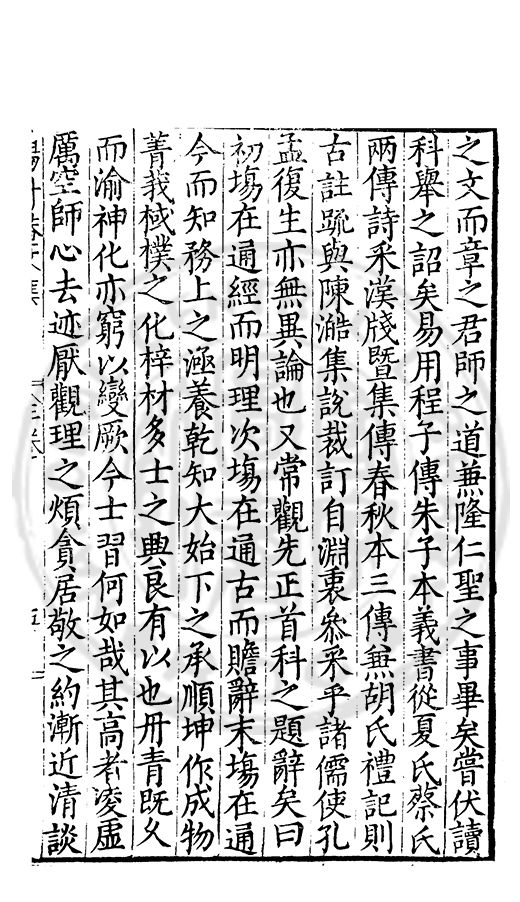 之文而章之君師之道兼隆仁聖之事畢矣嘗伏讀
科舉之詔矣易用程子傳朱子本義書從夏氏蔡氏
兩傳詩采漢牋暨集傳春秋本三傳兼胡氏禮記則
古註䟽與陳澔集説裁訂自淵衷叅采乎諸儒使孔
孟復生亦無異論也又常觀先正首科之題辭矣曰
初塲在通經而明理次塲在通古而贍辭末塲在通
今而知務上之涵養乾知大始下之承順坤作成物
菁莪棫樸之化梓材多士之興良有以也丹青既久
而渝神化亦窮以變厥今士習何如哉其高者凌虛
厲空師心去迹厭觀理之煩貪居敬之約漸近清談